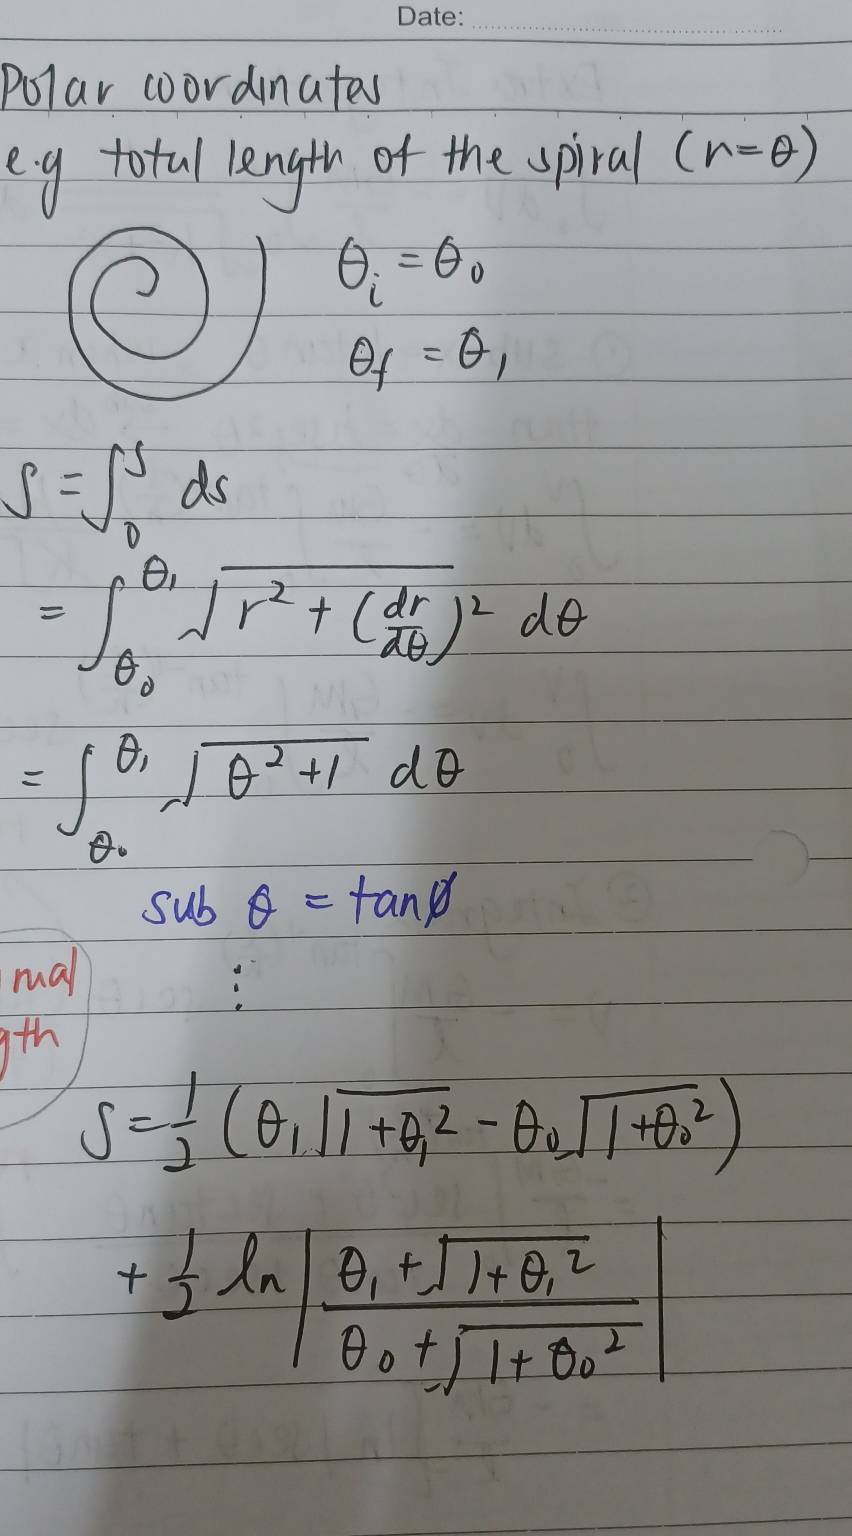 Date:
Polar coordinates
e.g total length of the spiral (r=θ)
θᵢ = θ₀
θf = θ₁
S = ∫₀ˢ ds
= ∫_θ₀^θ₁ √(r² + (dr/dθ)²) dθ
= ∫_θ₀^θ₁ √(θ²+1) dθ
sub θ = tanø
mal
gth
⋮
S = 1/2 (θ₁√(1+θ₁²) - θ₀√(1+θ₀²))
+ 1/2 ln |(θ₁+√(1+θ₁²))/(θ₀+√(1+θ₀²))|